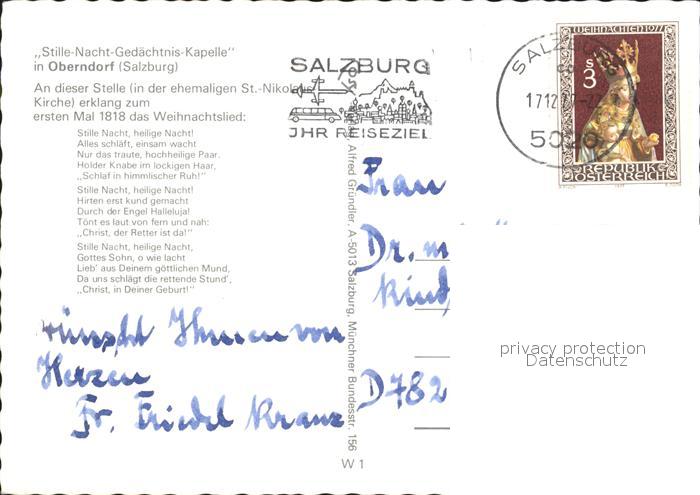 „Stille-Nacht-Gedächtnis-Kapelle"
in Oberndorf (Salzburg)
An dieser Stelle (in der ehemaligen St.-Nikolaus-
Kirche) erklang zum
ersten Mal 1818 das Weihnachtslied:
Stille Nacht, heilige Nacht!
Alles schläft, einsam wacht
Nur das traute, hochheilige Paar.
Holder Knabe im lockigen Haar,
„Schlaf in himmlischer Ruh!"
Stille Nacht, heilige Nacht!
Hirten erst kund gemacht
Durch der Engel Halleluja!
Tönt es laut von fern und nah:
„Christ, der Retter ist da!"
Stille Nacht, heilige Nacht,
Gottes Sohn, o wie lacht
Lieb' aus Deinem göttlichen Mund,
Da uns schlägt die rettende Stund',
„Christ, in Deiner Geburt!"
wünscht Ihnen von
Herzen
Fr. Friedel Kranz
SALZBURG
IHR REISEZIEL
Alfred Gründler, A-5013 Salzburg, Münchner Bundesstr. 156
W 1
SALZBURG
17.12.77
5020
WEIHNACHTEN 1977
S
3
REPUBLIK
ÖSTERREICH
Frau
Dr. m
Kind
D 782
privacy protection
Datenschutz